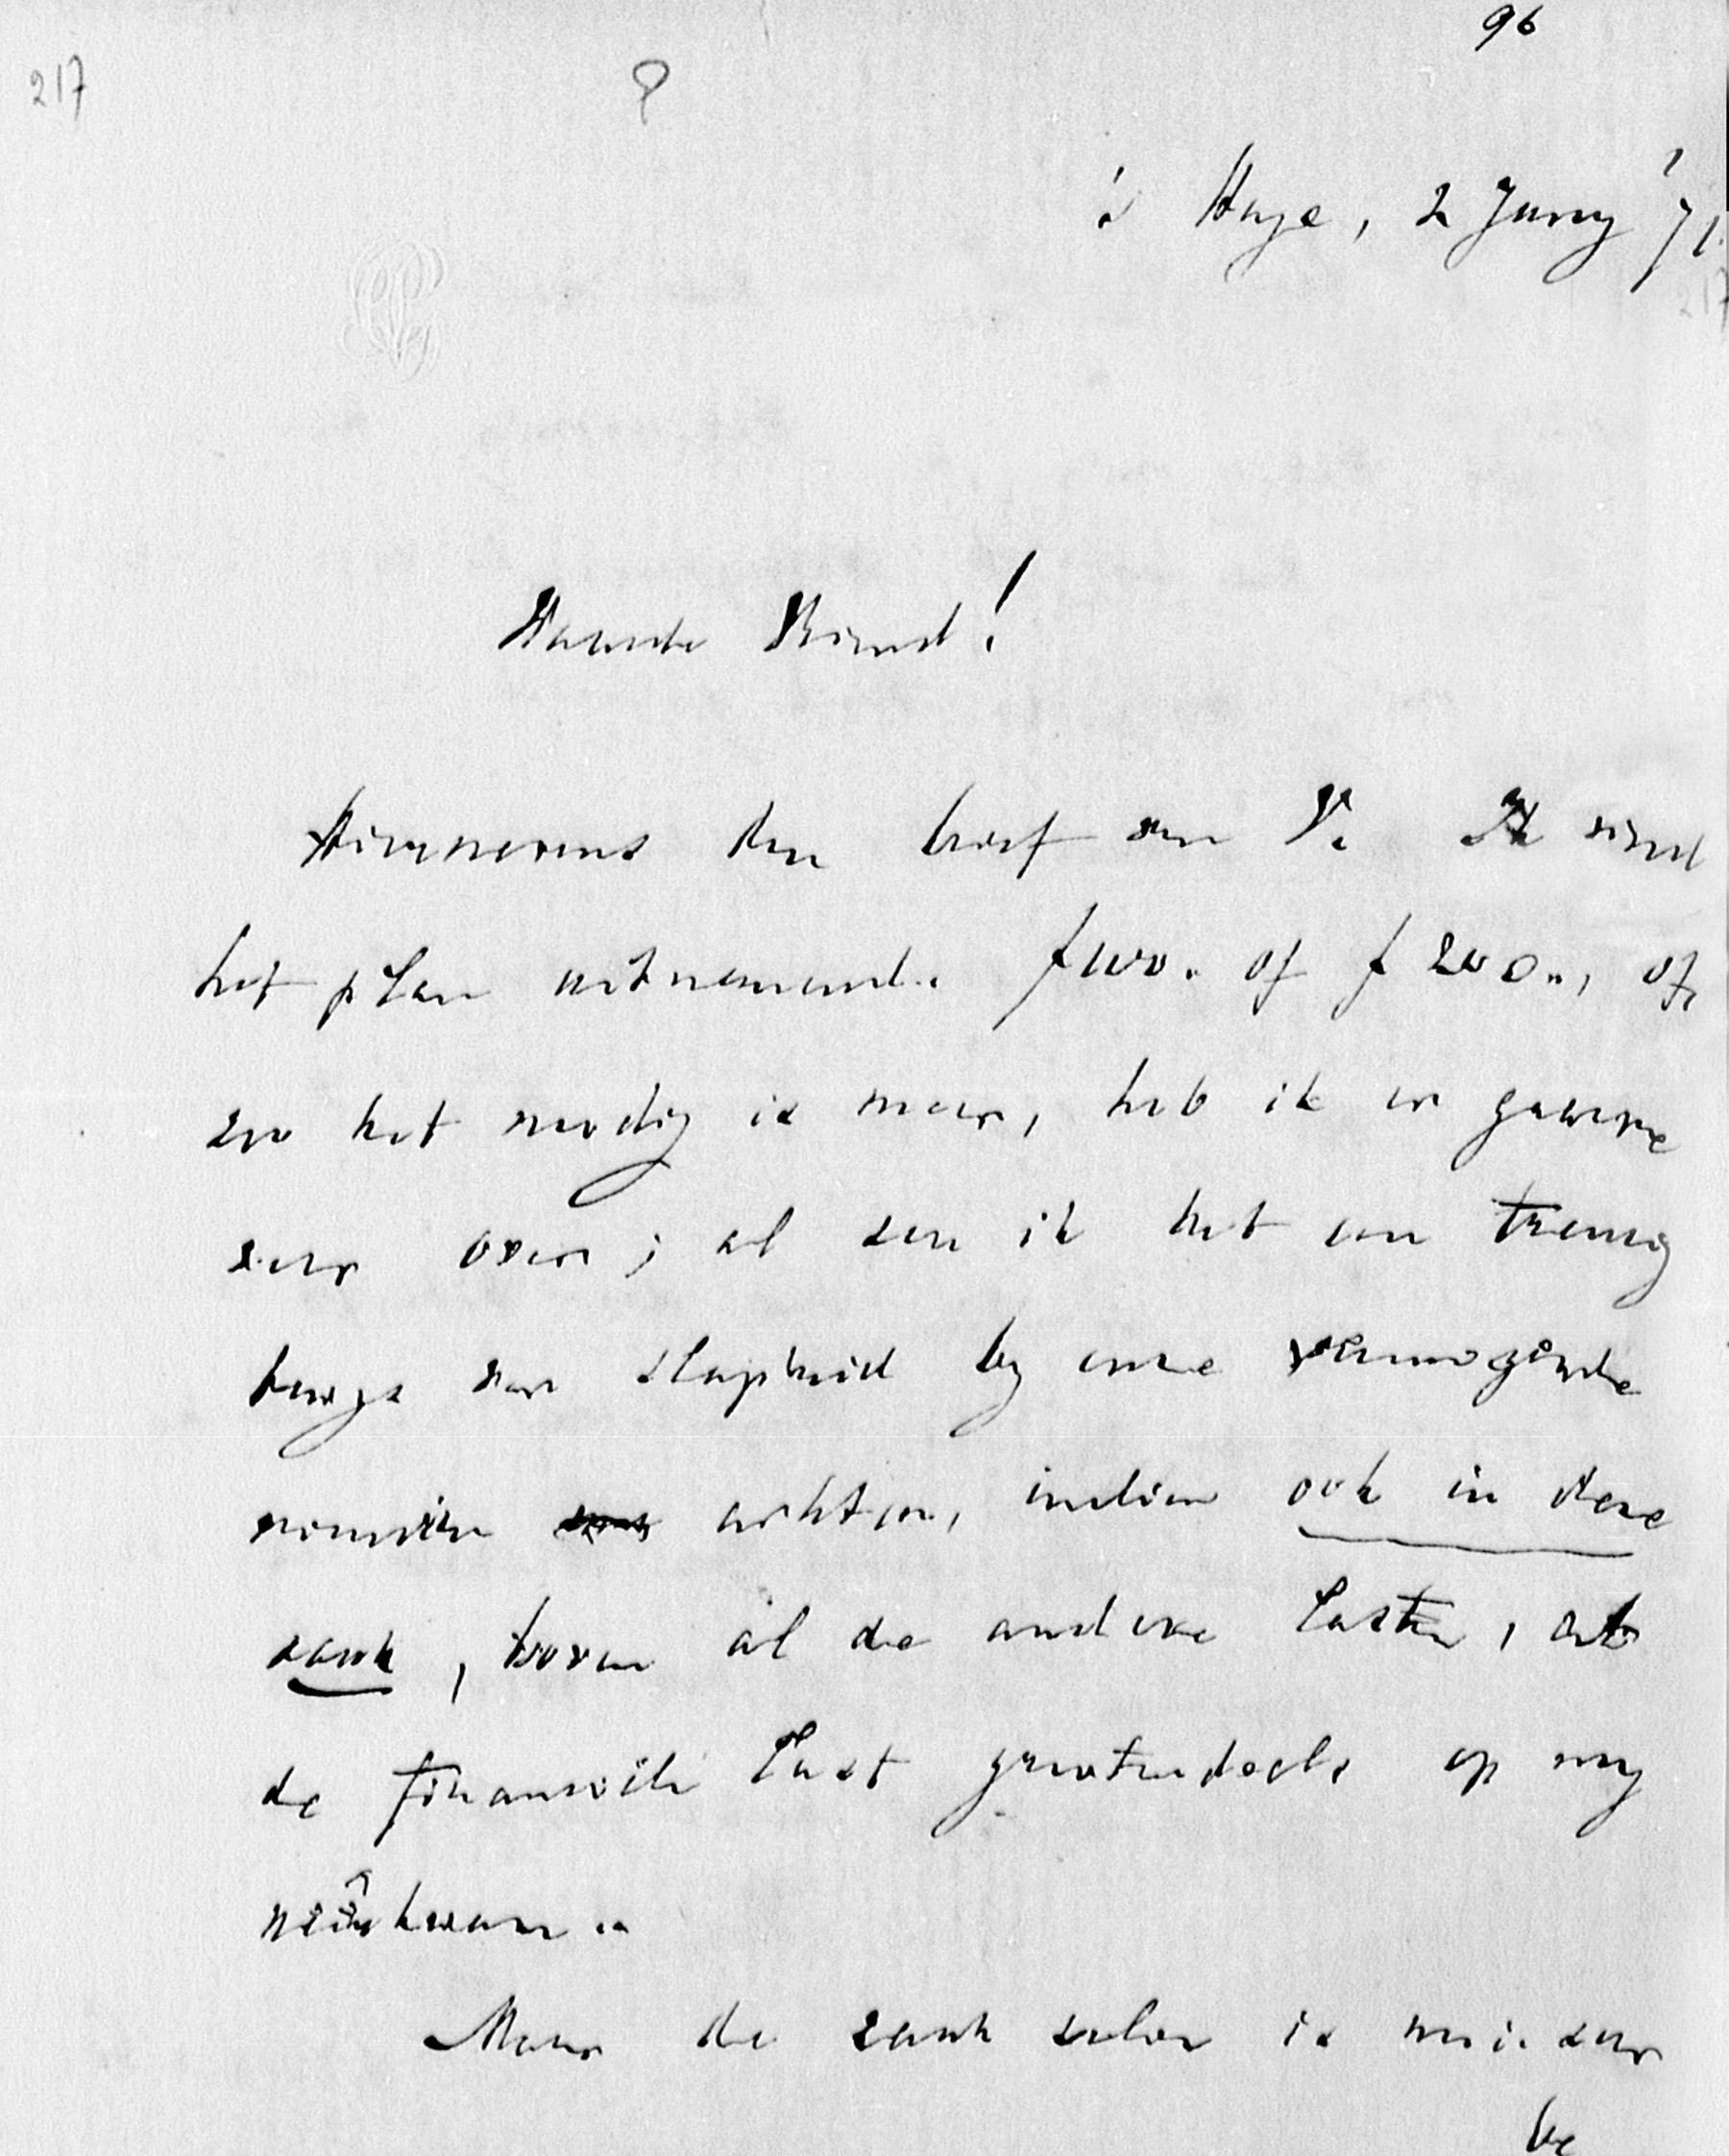 96
217
's Hage, 2 Juny '71.
Waarde Vriend!
Hiernevens den brief van V. Ik vind
het plan uitnemend. f 100. of f 200., of,
zoo het noodig is meer, heb ik er gaarne
voor over; al zou ik het een treurig
bewys van slapheid by onze vermogende
vrienden achten, indien ook in deze
zaak, boven al de andere lasten,
de finantiële last grootendeels op my
neêrkwam.
Maar de zaak zelve is mi. zeer
be